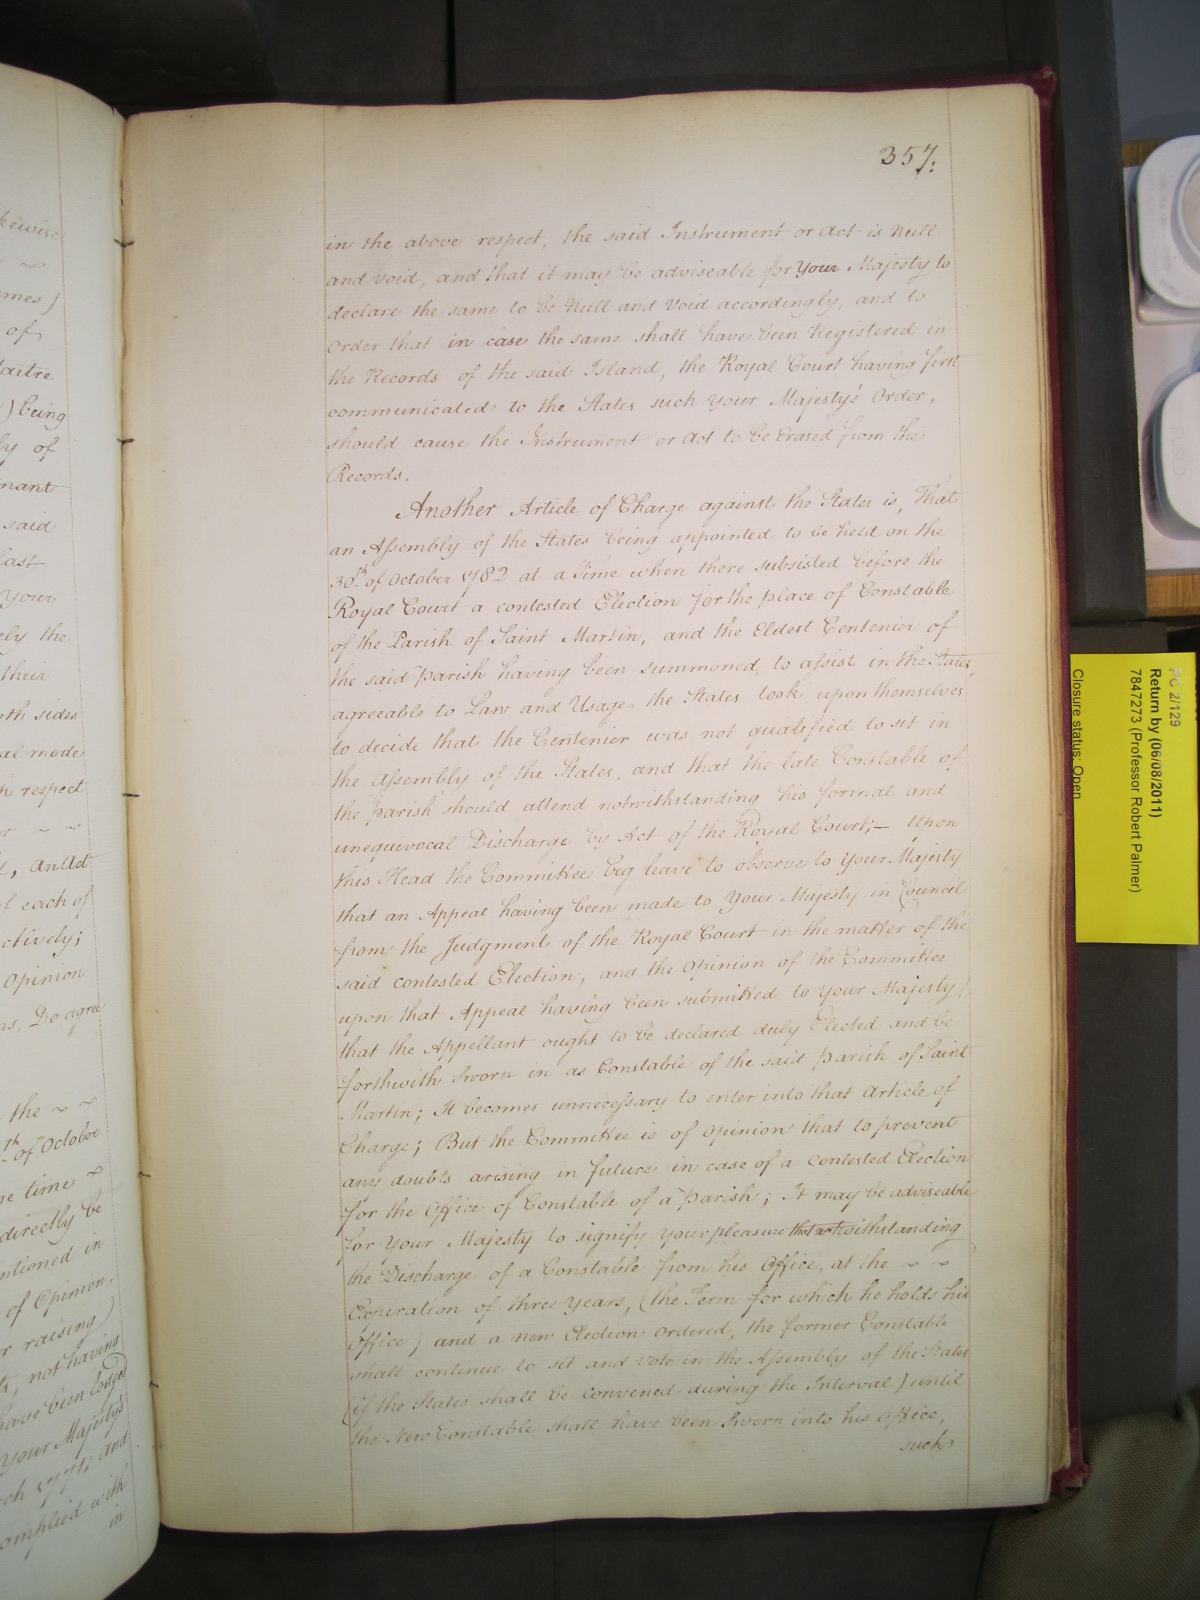 357.
in the above respect, the said Instrument or Act is Null
and void, and that it may be adviseable for Your Majesty to
declare the same to be Null and Void accordingly, and to
Order that in case the same shall have been Registered in
the Records of the said Island, the Royal Court having first
communicated to the States such Your Majesty's Order,
should cause the Instrument or Act to be Erased from the
Records.
Another Article of Charge against the States is, That
an Assembly of the States being appointed to be held on the
30th of October 1782 at a Time when there subsisted before the
Royal Court a contested Election for the place of Constable
of the Parish of Saint Martin, and the Eldest Centenier of
the said parish having been summoned to assist in the States,
agreeable to Law and Usage the States took upon themselves
to decide that the Centenier was not qualified to sit in
the Assembly of the States, and that the late Constable of
the parish should attend notwithstanding his formal and
unequivocal Discharge by Act of the Royal Court;— Upon
this Head the Committee beg leave to observe to Your Majesty
that an Appeal having been made to Your Majesty in Council
from the Judgment of the Royal Court in the matter of the
said contested Election, and the Opinion of the Committee
upon that Appeal having been submitted to Your Majesty,
that the Appellant ought to be declared duly Elected and be
forthwith Sworn in as Constable of the said parish of Saint
Martin; It becomes unnecessary to enter into that Article of
Charge; But the Committee is of Opinion that to prevent
any doubts arising in future in case of a contested Election
for the Office of Constable of a parish; It may be adviseable
for Your Majesty to signify your pleasure that notwithstanding
the Discharge of a Constable from his Office, at the ~ ~
Experation of three Years, (the Term for which he holds his
Office) and a new Election ordered, the former Constable
shall continue to sit and vote in the Assembly of the States
(if the States shall be convened during the Interval) until
the New Constable shall have been Sworn into his Office,
such
PC 2/129
Return by (06/08/2011)
7847273 (Professor Robert Palmer)
Closure status: Open